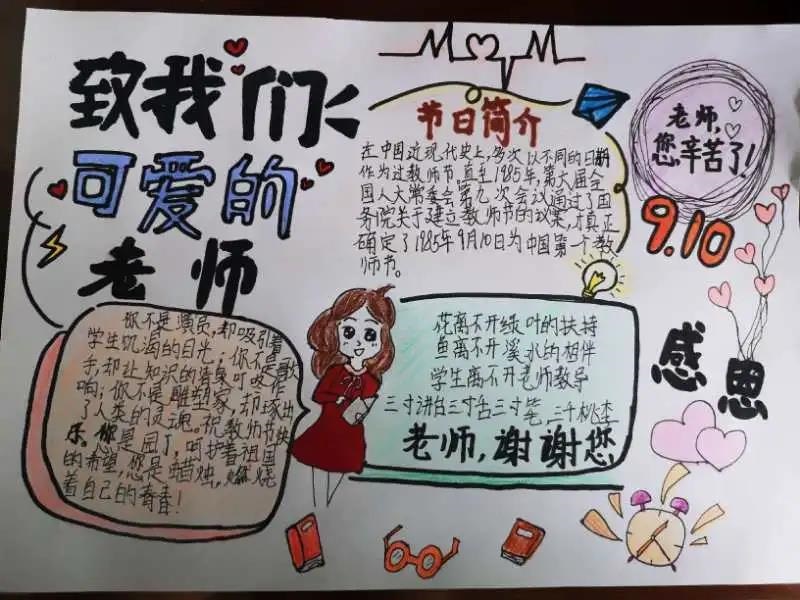 致我们
可爱的
老师
节日简介
在中国近现代史上,多次以不同的日期
作为过教师节.直至1985年,第六届全
国人大常委会第九次会议通过了国
务院关于建立教师节的议案,才真正
确定了1985年9月10日为中国第一个教
师节。
老师,
您辛苦了!
9.10
感恩
你不是演员,却吸引着
学生饥渴的目光;你不是歌
手,却让知识的清泉叮咚作
响;你不是雕塑家,却琢出
了人类的灵魂.祝教师节快
乐.您是园丁,呵护着祖国
的希望,您是蜡烛,燃烧
着自己的青春!
花离不开绿叶的扶持
鱼离不开溪水的相伴
学生离不开老师教导
三寸讲台三寸舌三寸笔,三千桃李
老师,谢谢您